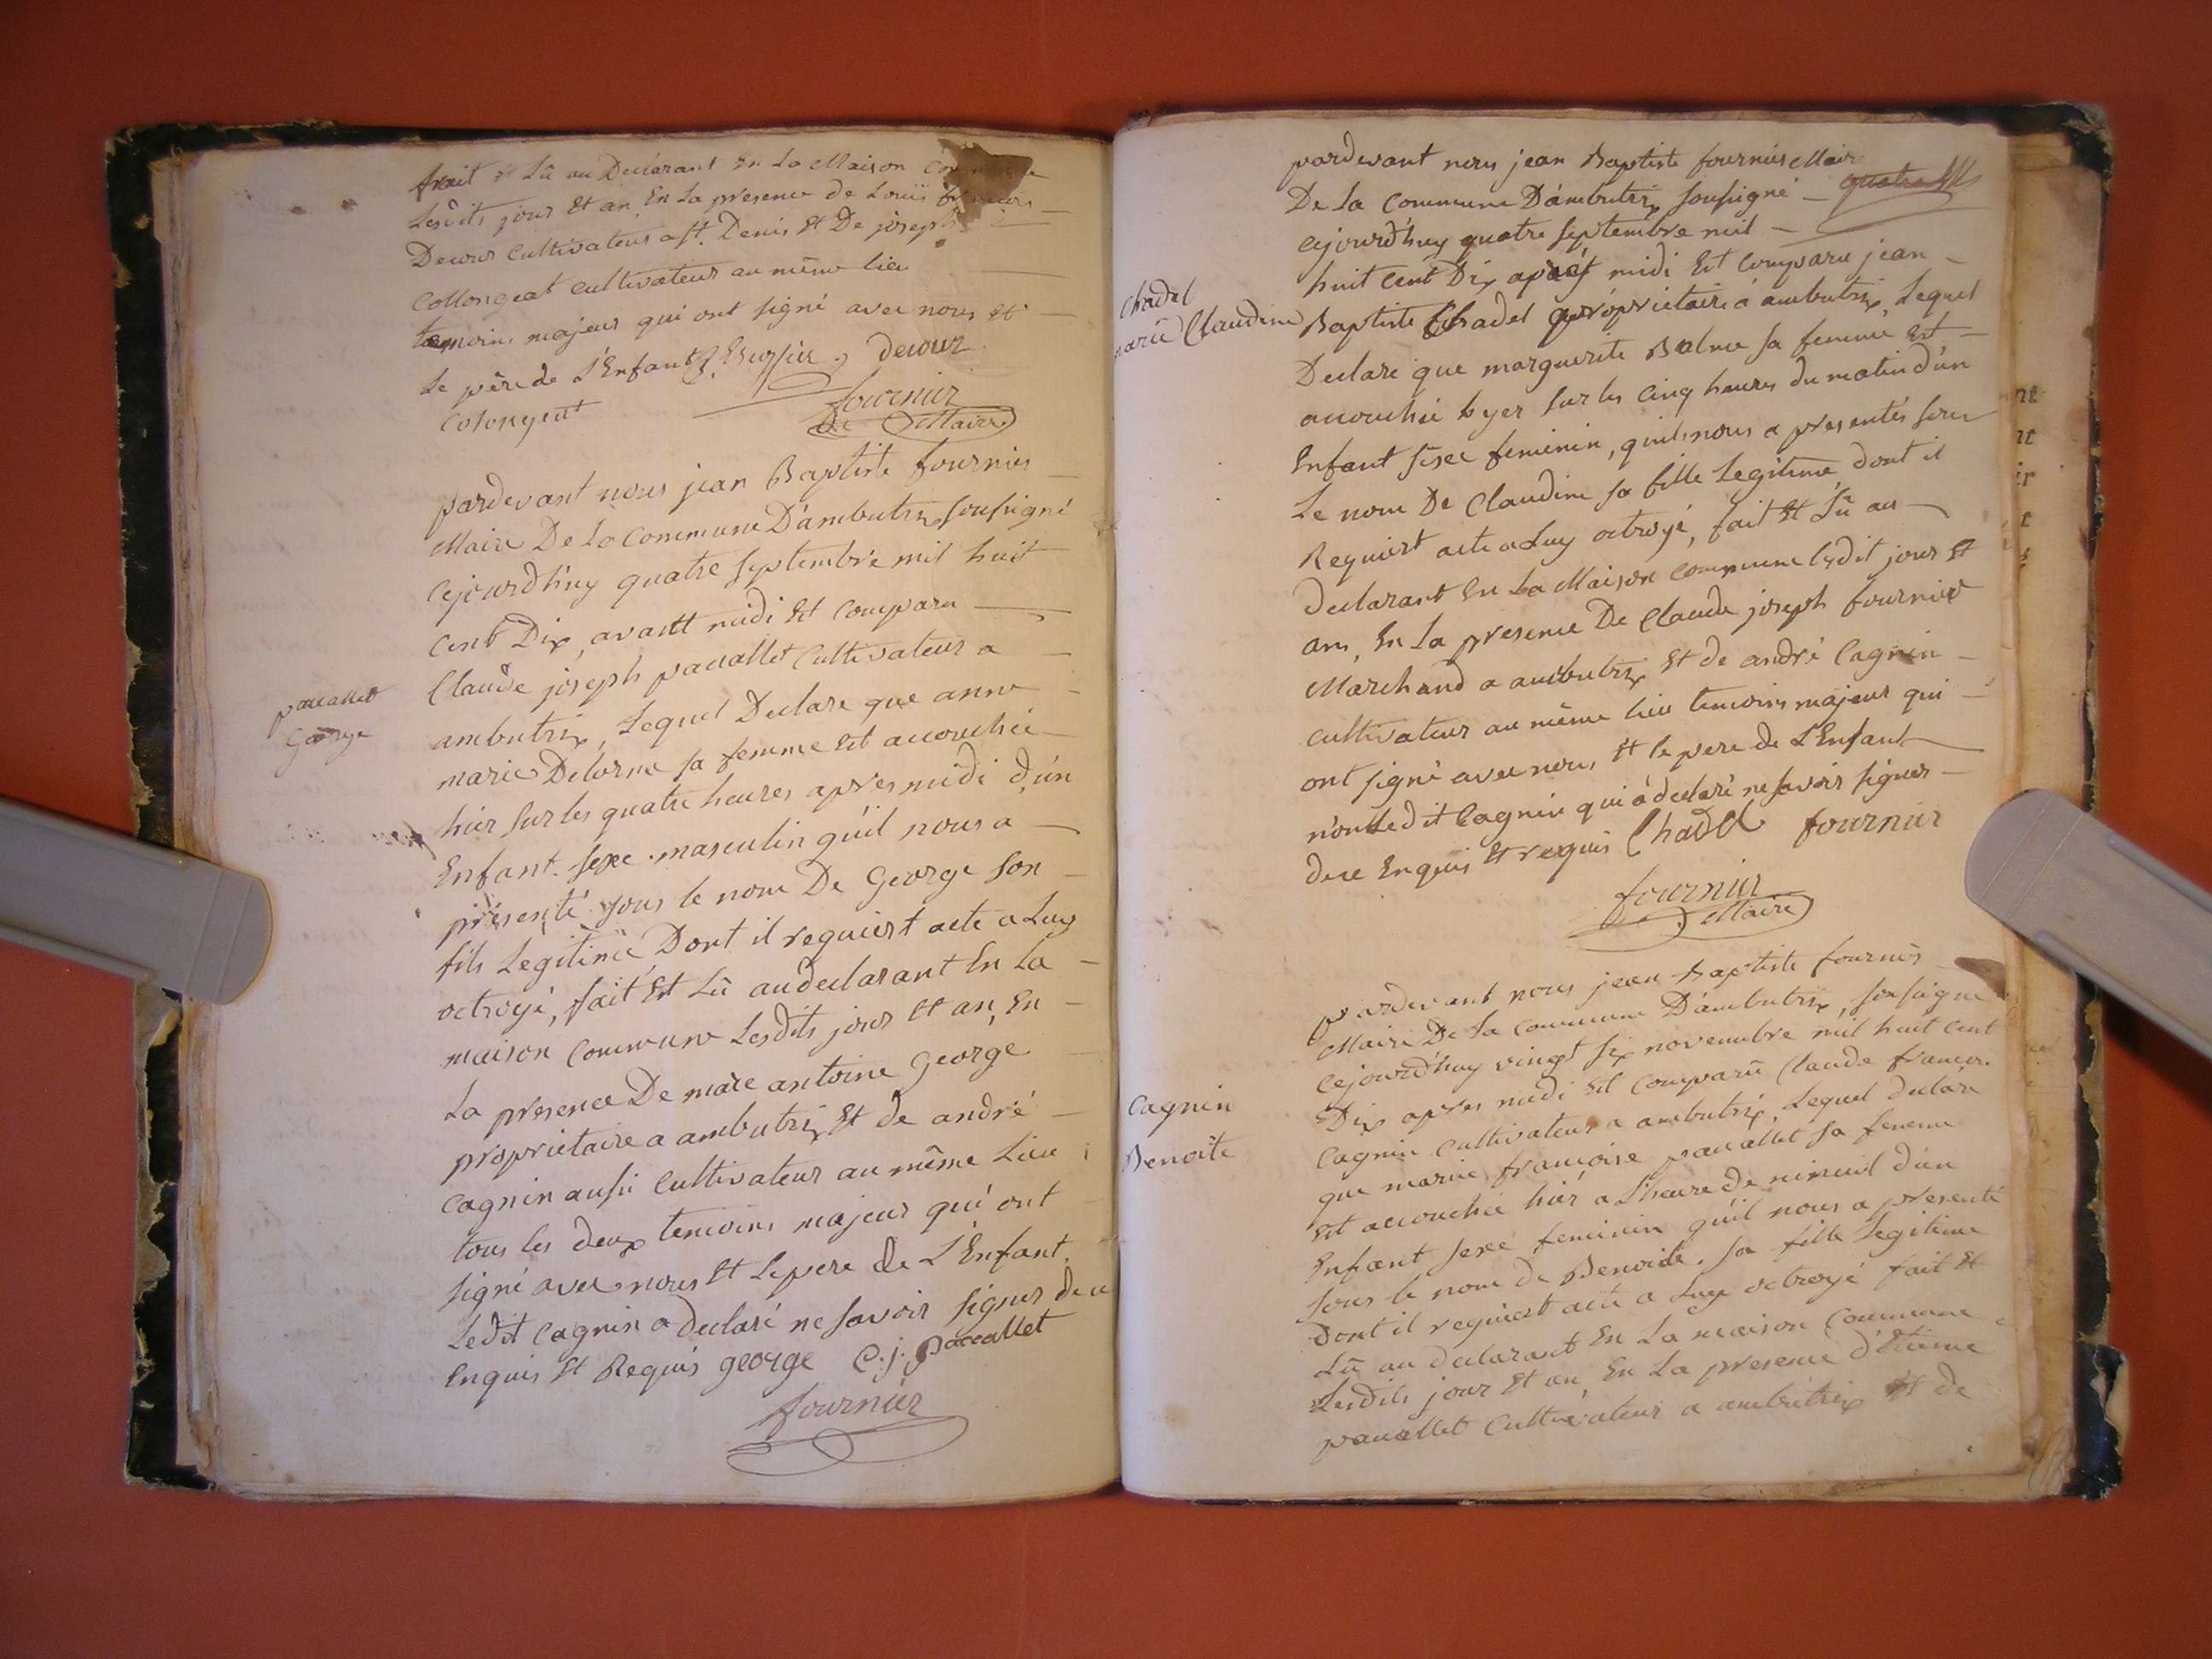 fait et Lû au Declarant En La Maison Commune
Lesdits jour Et an, En La presence de Louis françois
Decour Cultivateur a St. Denis Et De joseph
Collongeat cultivateur au même lieu
temoins majeur qui ont signé avec nous Et
Le père de L'Enfant Decour
Colongeat fournier
Maire
pardevant nous jean Baptiste fournier
Maire De La Commune D'ambutrix soussigné
Cejourd'huy quatre septembre mil huit
Cent Dix, avant midi Est Comparu
paccallet
George
Claude joseph paccallet Cultivateur a
ambutrix, Lequel Declare que anne
marie Delorme sa femme Est accouchée
hier sur les quatre heures après midi d'un
Enfant sexe masculin qu'il nous a
présenté sous le nom De George son
fils Legitime Dont il requiert acte a Luy
octroyé, fait Et Lû au declarant En La
maison Commune Lesdits jour Et an, En
La presence De marc antoine George
propriétaire a ambutrix Et de andré
Cagnin aussi Cultivateur au même Lieu
tous les deux temoins majeur qui ont
signé avec nous Et Le pere de L'Enfant.
Ledit Cagnin a declaré ne savoir signer de ce
Enquis Et Requis george C. j. Paccallet
fournier
pardevant nous jean Baptiste fournier Maire
De La Commune D'ambutrix soussigné quatre
Cejourd'huy quatre septembre mil
huit Cent Dix après midi Est comparu jean
Chadel
marie Claudine
Baptiste Chadel propriétaire a ambutrix, Lequel
Declare que marguerite Balme sa femme Est
accouchée hyer sur les Cinq heures du matin d'un
Enfant sexe feminin, qu'il nous a presentés sous
Le nom De Claudine sa fille Legitime dont il
Requiert acte a Luy octroyé, fait Et Lû au
declarant En La Maison Commune lesdit jour Et
an, En La presence De Claude joseph fournier
Marchand a ambutrix Et de andré Cagnin
cultivateur au même lieu temoins majeur qui
ont signé avec nous, Et le pere de L'Enfant
non Ledit Cagnin qui a declaré ne savoir signer
de ce Enquis Et requis Chadel fournier
fournier
Maire
pardevant nous jean Baptiste fournier
Maire De La commune D'ambutrix, soussigné
Cejourd'huy vingt six novembre mil huit cent
Dix apres midi Est Comparû Claude françois
Cagnin
Benoite
Cagnin Cultivateur a ambutrix, Lequel declare
que marie françoise paccallet sa femme
Est accouchée hier a L'heure de minuit d'un
Enfant sexe feminin qu'il nous a presenté
sous le nom de Benoite sa fille Legitime
dont il requiert acte a Luy octroyé fait Et
Lû au declarant En La maison Commune
Lesdits jour Et an, En La presence d'Etienne
paccallet Cultivateur a ambutrix Et de